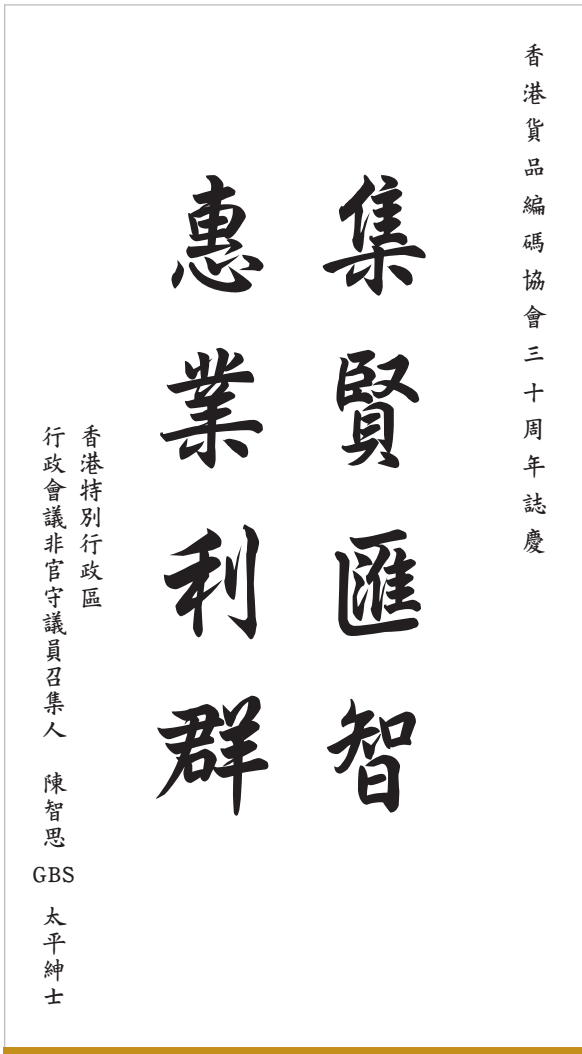 香港貨品編碼協會三十周年誌慶
集賢匯智
惠業利群
香港特別行政區
行政會議非官守議員召集人 陳智思 GBS 太平紳士